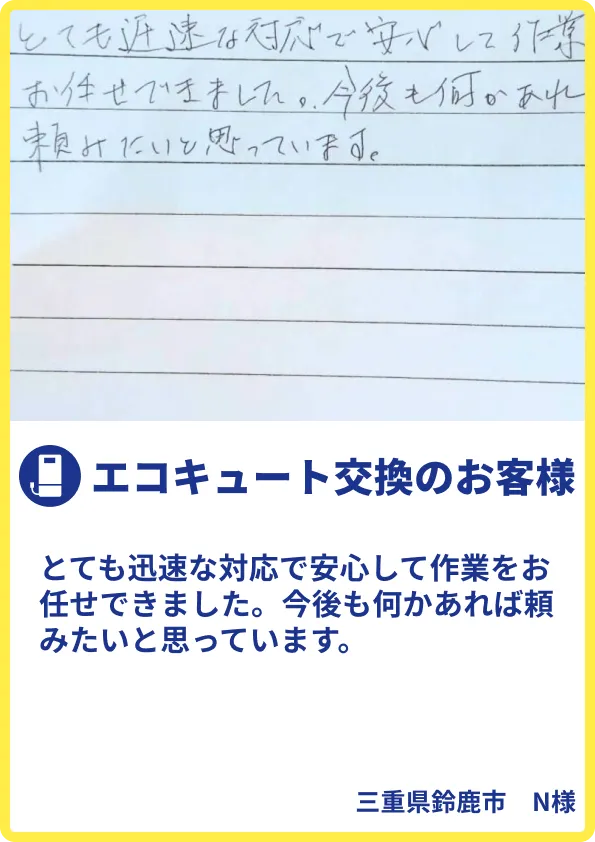 とても迅速な対応で安心して作業
お任せできました。今後も何かあれ
頼みたいと思っています。
エコキュート交換のお客様
とても迅速な対応で安心して作業をお
任せできました。今後も何かあれば頼
みたいと思っています。
三重県鈴鹿市 N様